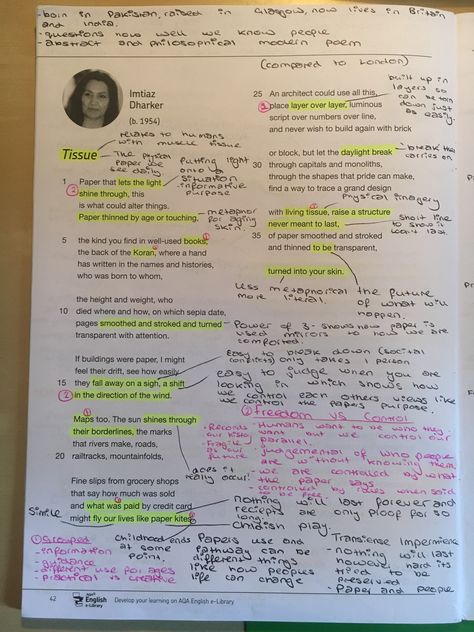 - born in Pakistan, raised in Glasgow, now lives in Britain
and India.
- questions how well we know people
- abstract and philosophical modern poem
(compared to London)
Imtiaz
Dharker
(b. 1954)
relates to humans
with muscle tissue
Tissue
- The physical
paper we
see daily.
putting light
onto a
situation
- informative
purpose
1 Paper that lets the light
shine through, this
is what could alter things.
Paper thinned by age or touching,
- metaphor
for aging
skin.
5 the kind you find in well-used books,
the back of the Koran, where a hand
has written in the names and histories,
who was born to whom,
the height and weight, who
10 died where and how, on which sepia date,
pages smoothed and stroked and turned
transparent with attention.
If buildings were paper, I might
feel their drift, see how easily
15 they fall away on a sigh, a shift
in the direction of the wind.
Maps too. The sun shines through
their borderlines, the marks
that rivers make, roads,
20 railtracks, mountainfolds,
Fine slips from grocery shops
that say how much was sold
and what was paid by credit card
might fly our lives like paper kites.
25 An architect could use all this,
place layer over layer, luminous
script over numbers over line,
and never wish to build again with brick
or block, but let the daylight break
30 through capitals and monoliths,
through the shapes that pride can make,
find a way to trace a grand design
with living tissue, raise a structure
never meant to last,
35 of paper smoothed and stroked
and thinned to be transparent,
turned into your skin.
built up in
layers so
can be torn
down just
as easily.
- break thee
carries on
Physical imagery
short line
to show it
won't last.
less metaphorical
more literal.
the future
of what will
happen.
- Power of 3 - shows how paper is
used mirrors to how we are
comforted.
easy to break down (social
conflicts) only takes 1 person
easy to judge when you are
looking in which shows how
we control each others views like
we control the papers purpose.
② Freedom vs Control
- Records
our history
- Fragile
as your
future
- Humans want to be who they
want but we control our
parallel.
- judgemental of who people
are without knowing them
- we are controlled by what
the paper says
- controlled by rules when said
to be free
does it
really occur?
nothing will last forever and
reciepts are only proof for so
long
- Childish play.
Simile
① Grouped
- information
- guidance
- different use for ages
- practical vs creative
Childhood ends
at some
point.
Papers use and
pathway can be
different things
like how peoples
life can change
Transience Impermanence
- nothing will last
however hard its
tried to be
preserved
- Paper and people
42
AQA
English
e-Library
Develop your learning on AQA English e-Library